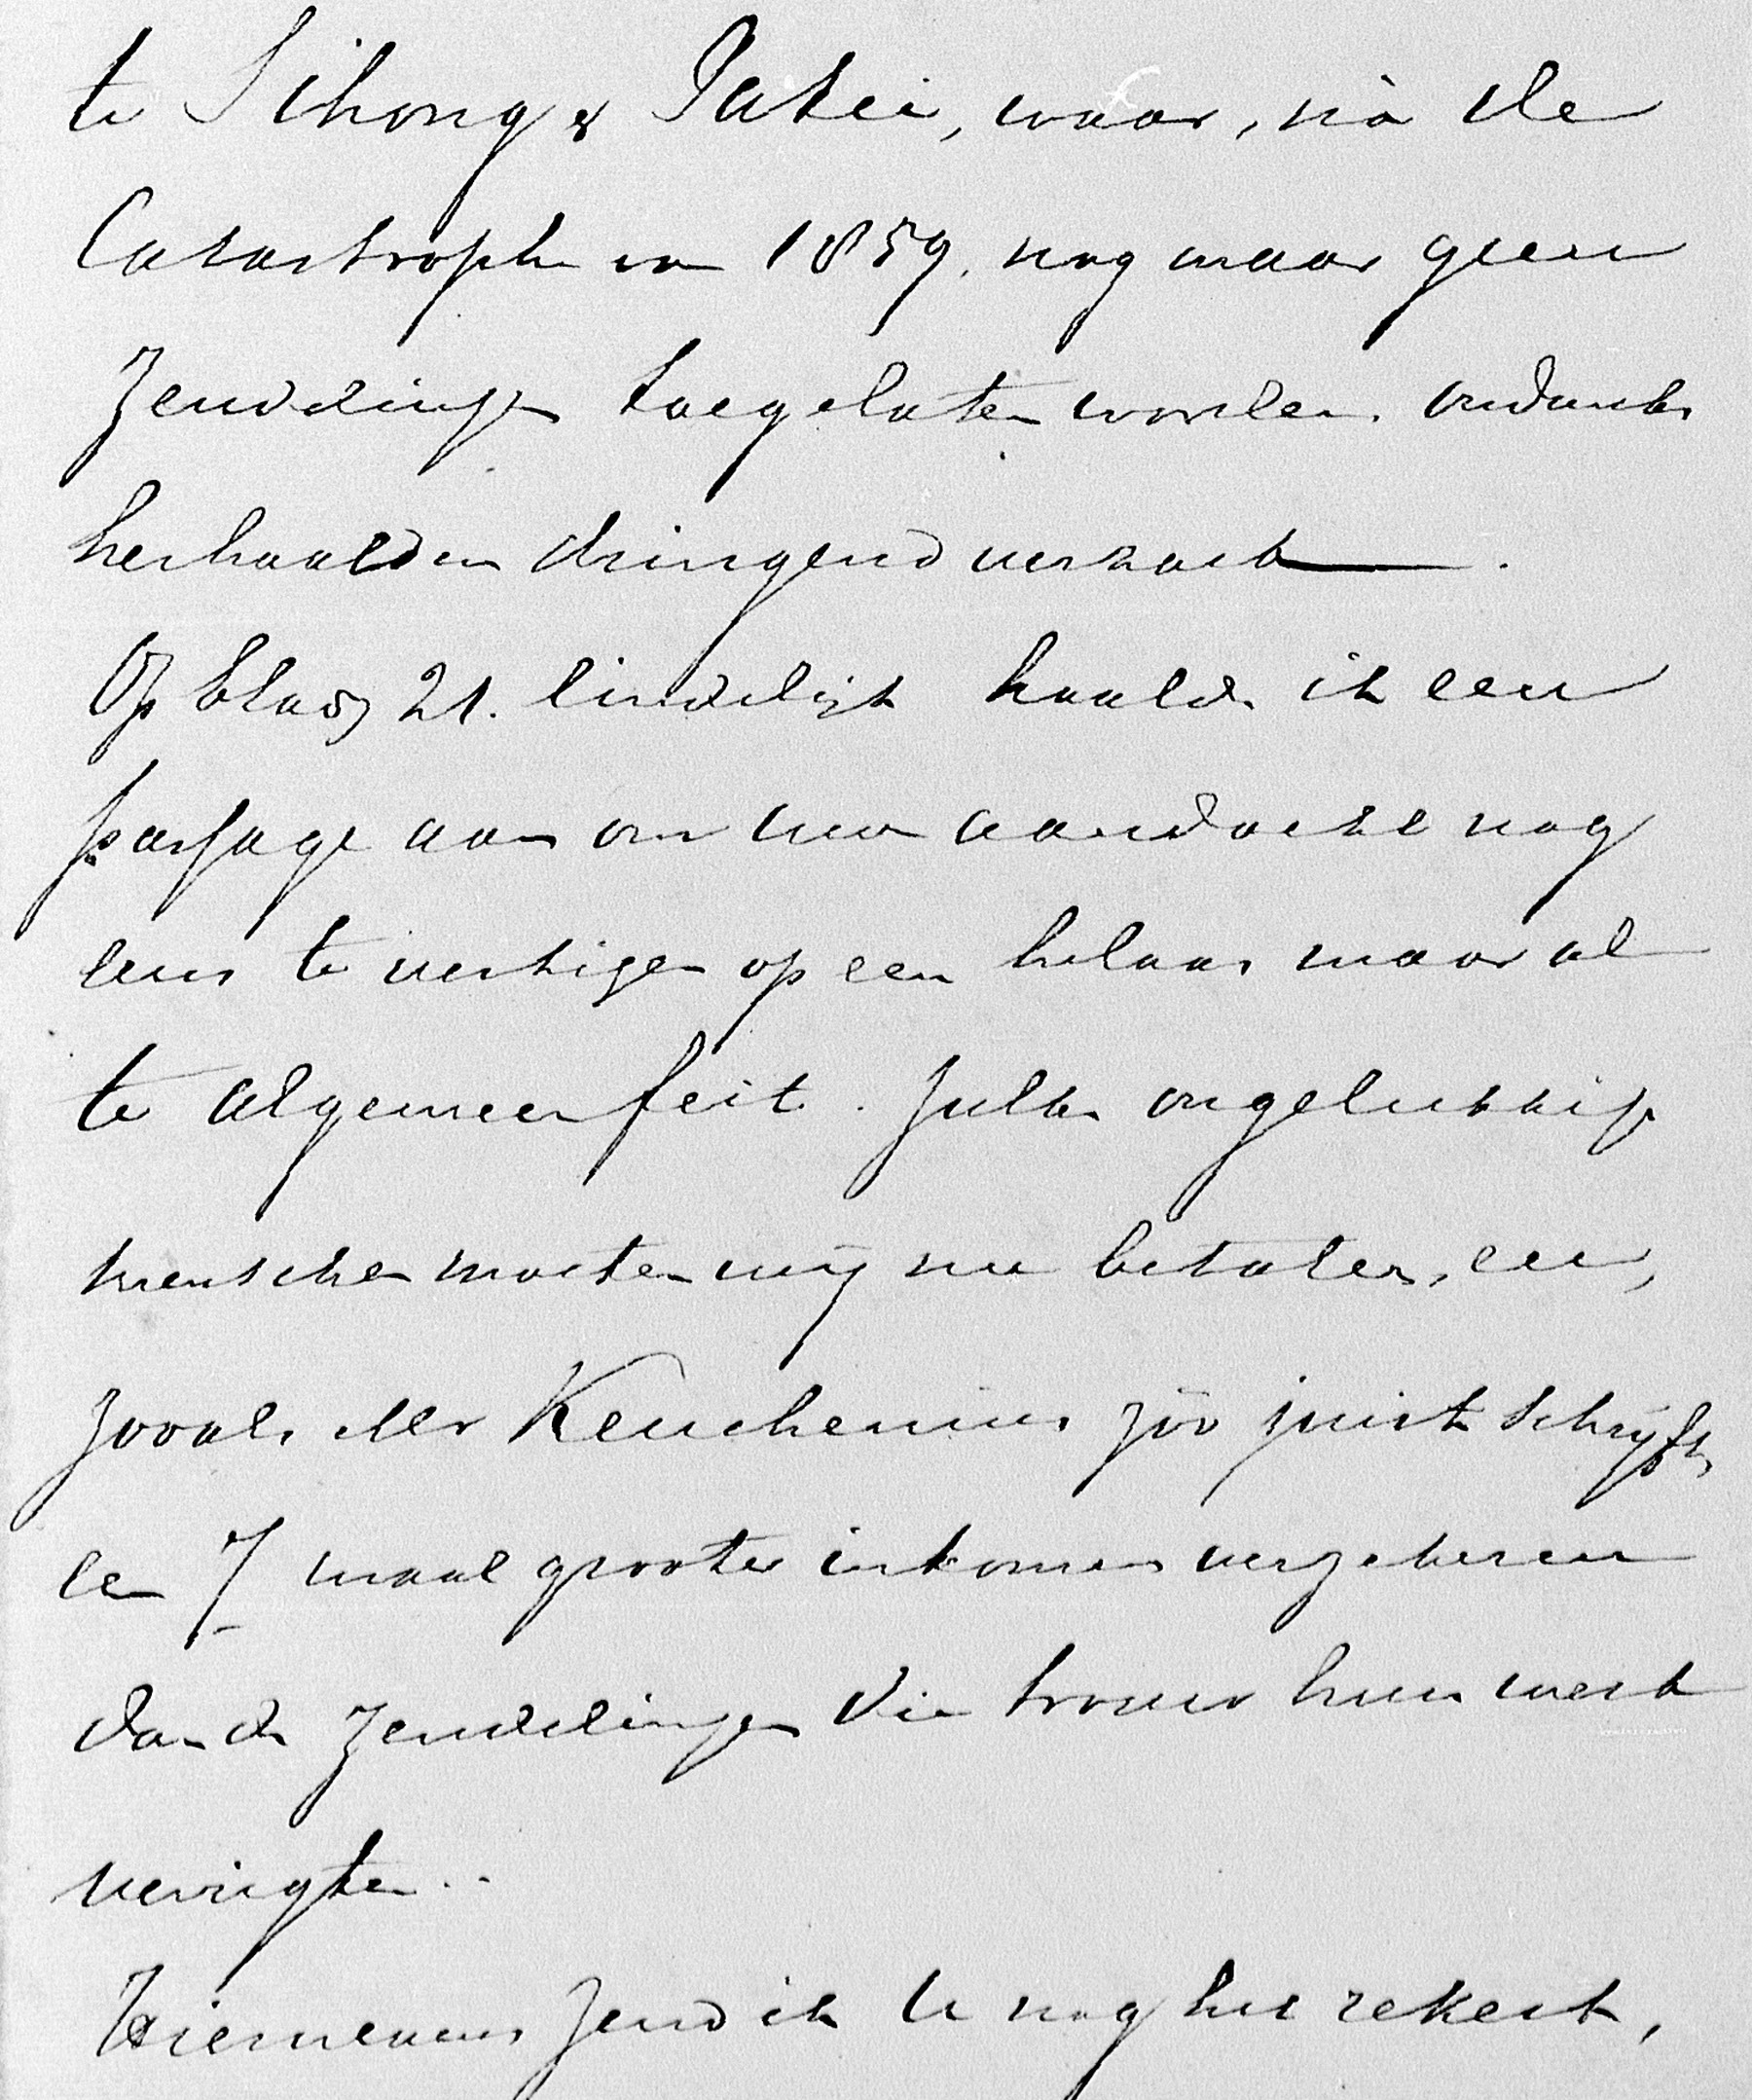 te Sihong & Patei, waar, nà de
Catastrophe van 1859. nog maar geen
Zendelingen toegelaten worden. ondanks
herhaald en dringend verzoek.
Op bladz 21. eindelijk haalde ik een
passage aan om uwe aandacht nog
eens te vestigen op een helaas maar al
te algemeen feit. Zulke ongelukkige
menschen moeten wij nu betalen, een,
zooals Mr Keuchenius zóó juist schrijft,
een 7 maal grooter inkomen verzekeren
dan de Zendelingen die trouw hun werk
verrigten..
Hiernevens zend ik U nog het rekest,